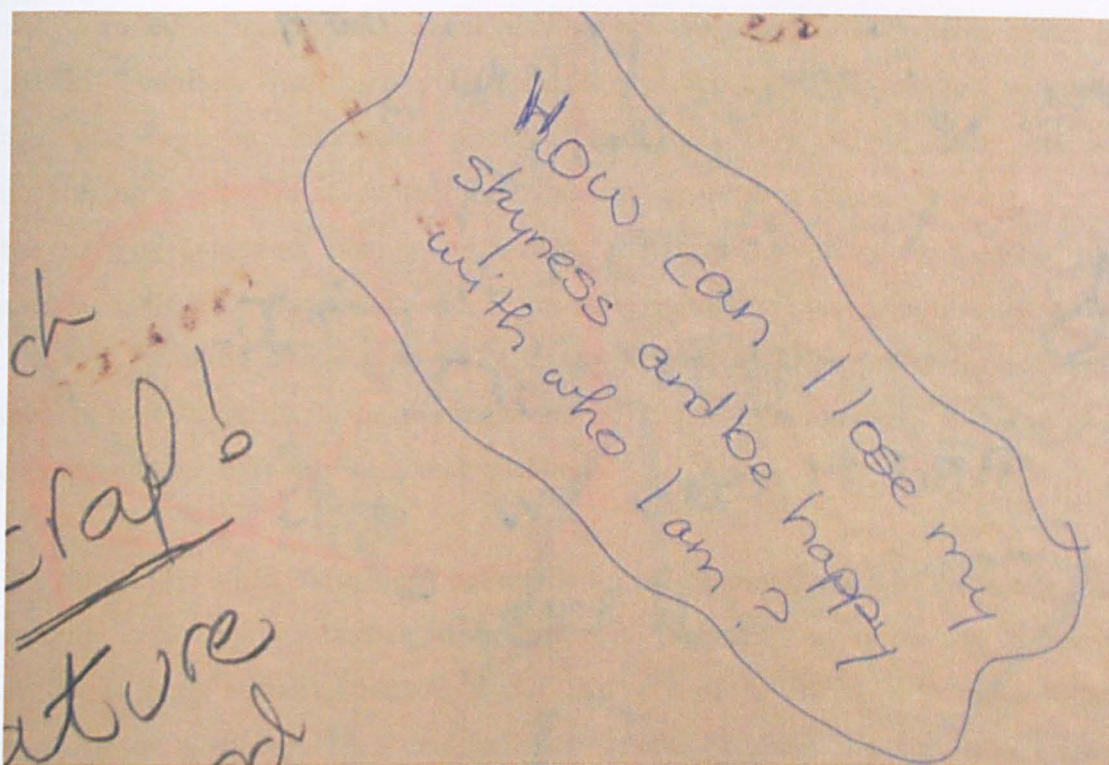 How can I lose my
shyness and be happy
with who I am?
ch
crap!
ature